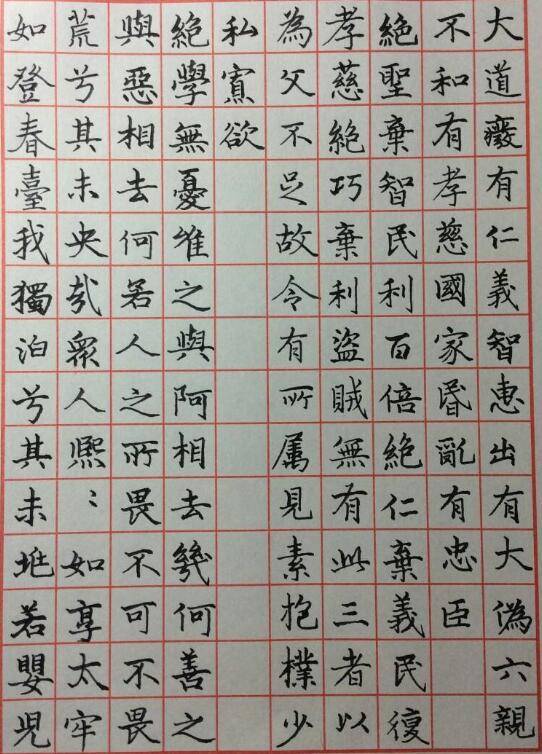 大道癈有仁義智惠出有大偽六親
不和有孝慈國家昬亂有忠臣
絕聖棄智民利百倍絕仁棄義民復
孝慈絕巧棄利盜賊無有此三者以
為父不足故令有所属見素抱樸少
私寡欲
絕學無憂維之與阿相去幾何善之
與惡相去何若人之所畏不可不畏
荒兮其未央哉衆人熈〻如享太牢
如登春臺我獨泊兮其未若嬰兒